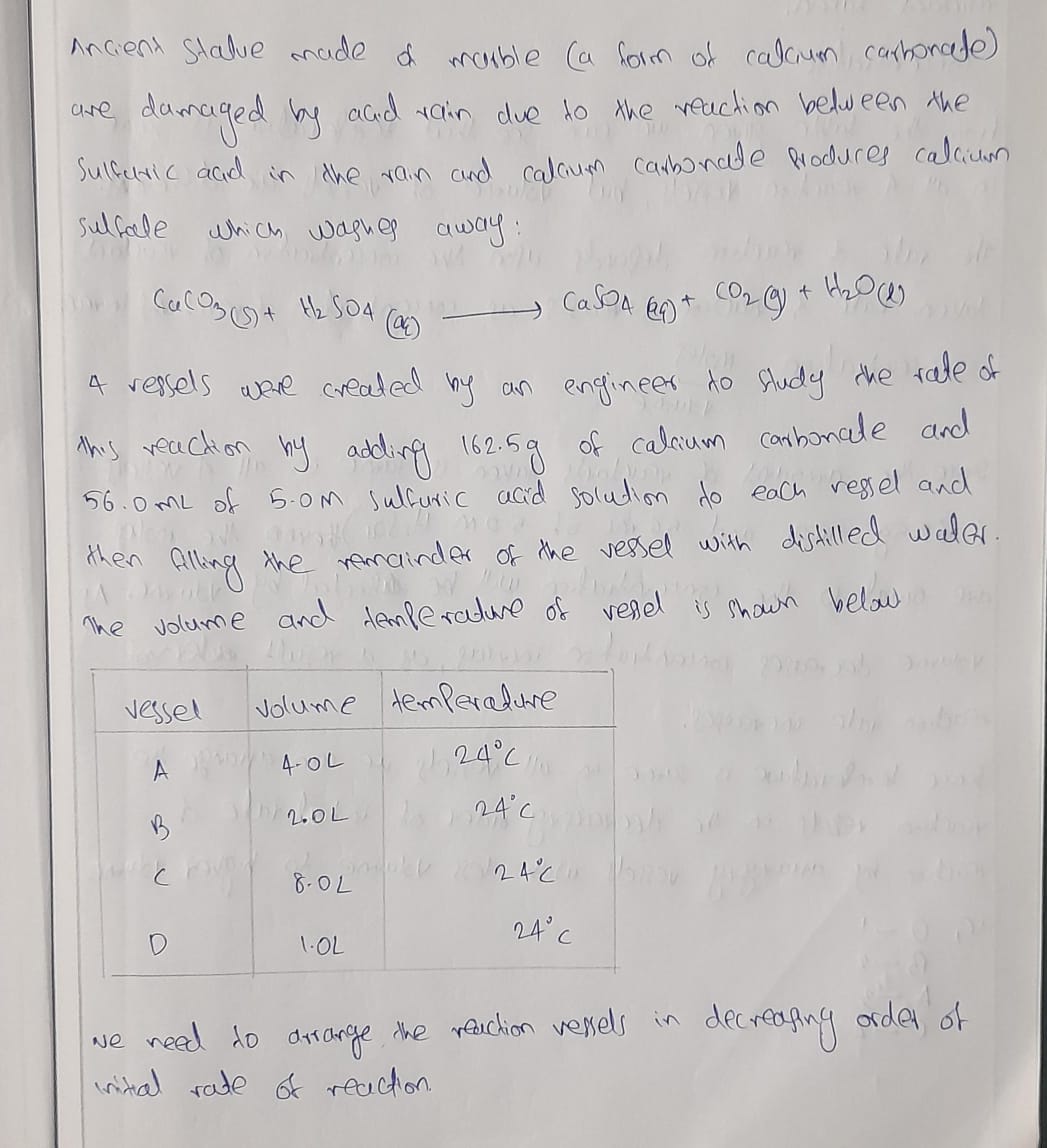 Ancient Statue made of marble (a form of calcium carbonate)
are damaged by acid rain due to the reaction between the
Sulfuric acid in the rain and calcium carbonate produces calcium
sulfate which washes away:
CaCO3(s) + H2SO4(aq) ⟶ CaSO4(aq) + CO2(g) + H2O(l)
4 vessels were created by an engineer to study the rate of
this reaction by adding 162.5g of calcium carbonate and
56.0mL of 5.0M sulfuric acid solution to each vessel and
then filling the remainder of the vessel with distilled water.
The volume and temperature of vessel is shown below
vessel volume temperature
A 4.0L 24°C
B 2.0L 24°C
C 8.0L 24°C
D 1.0L 24°C
we need to arrange the reaction vessels in decreasing order of
initial rate of reaction.